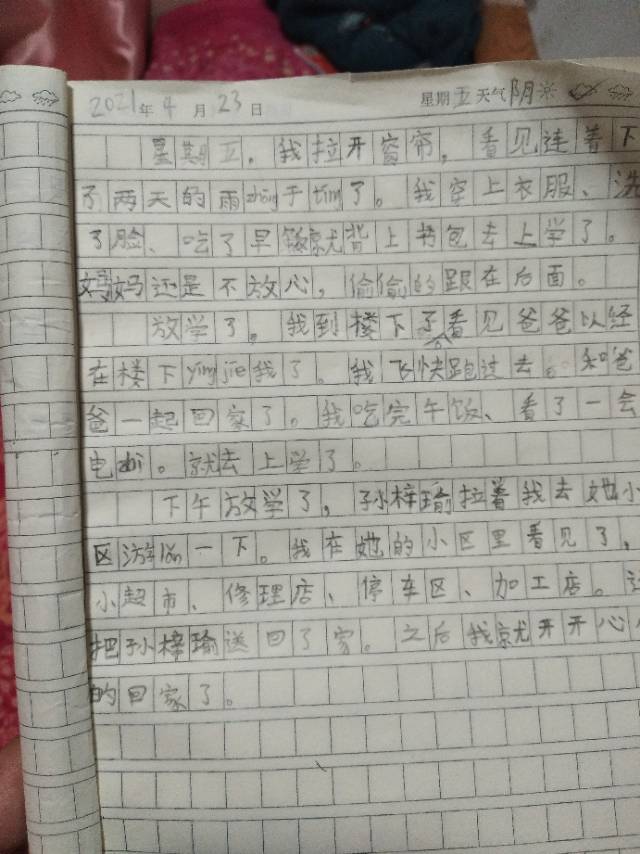 2021年4月23日 星期五天气阴
星期五，我拉开窗帘，看见连着下
了两天的雨zhōng于tíng了。我穿上衣服、洗
了脸、吃了早饭就背上书包去上学了。
妈妈还是不放心，偷偷的跟在后面。
放学了。我到楼下了看见爸爸以经
在楼下yíng jiē我了。我飞快跑过去。和爸
爸一起回家了。我吃完午饭、看了一会
电shì。就去上学了。
下午放学了，孙梓瑜拉着我去她小
区游一下。我在她的小区里看见了，
小超市、修理店、停车区、加工店。
把孙梓瑜送回了家。之后我就开开心心
的回家了。